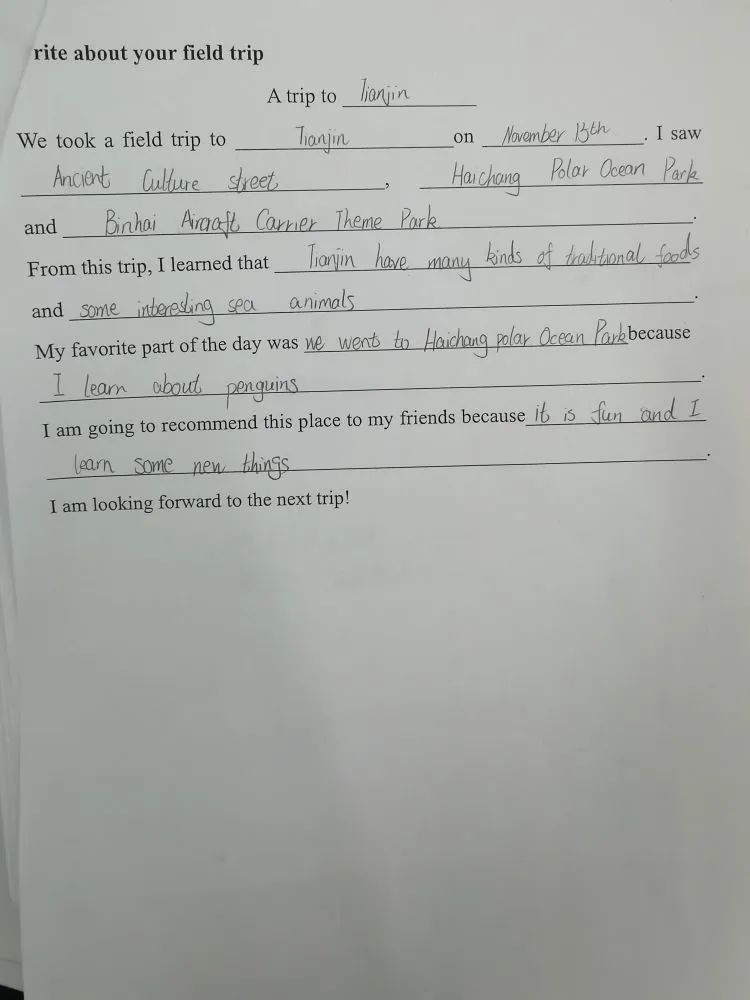 rite about your field trip
A trip to Tianjin
We took a field trip to Tianjin on November 13th. I saw
Ancient Culture street, Haichang Polar Ocean Park
and Binhai Aircraft Carrier Theme Park.
From this trip, I learned that Tianjin have many kinds of traditional foods
and some interesting sea animals.
My favorite part of the day was we went to Haichang polar Ocean Park because
I learn about penguins.
I am going to recommend this place to my friends because it is fun and I
learn some new things.
I am looking forward to the next trip!